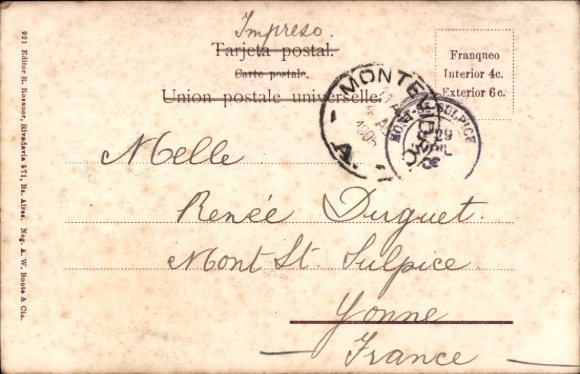 Impreso.
Tarjeta postal.
Carte postale.
Union postale universelle.
Franqueo
Interior 4c.
Exterior 6c.
MONTEVIDEO
Mont St. SULPICE
29
Melle
Renée Duguet.
Mont St. Sulpice
Yonne
France
921 Editor R. Rosauer, Rivadavia 571, Bs. Aires. Neg. A. W. Boote & Cia.